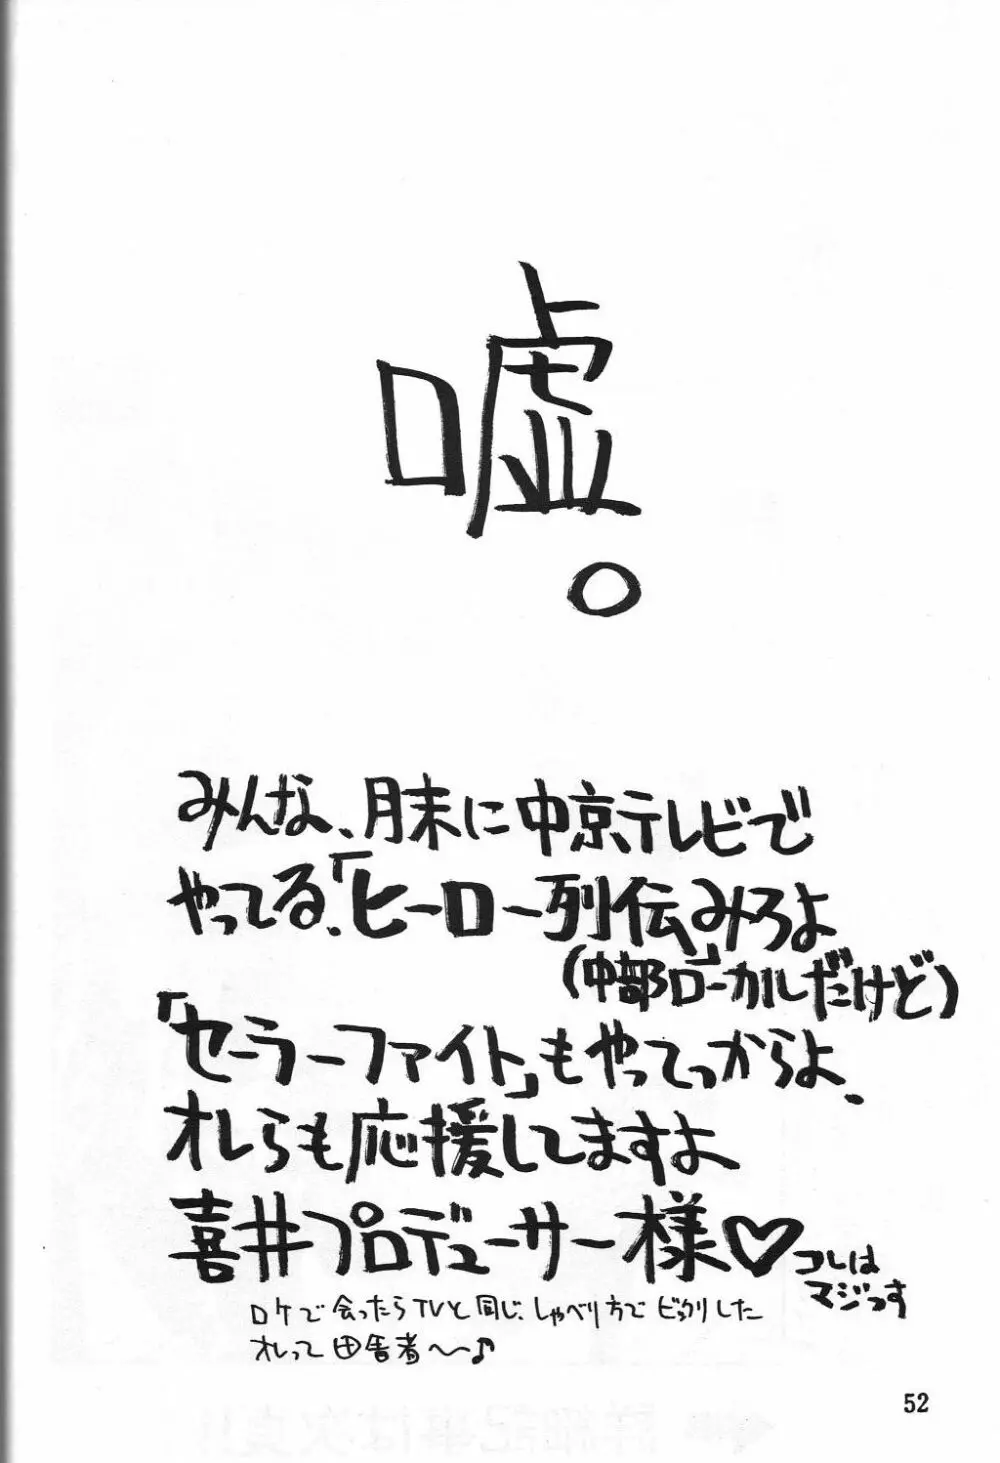 嘘。
みんな、月末に中京テレビで
やってる、「ヒーロー列伝」みろよ
(中部ローカルだけど)
「セーラーファイト」もやってっからよ、
オレらも応援してますよ
喜井プロデューサー様♡
コレは
マジっす
ロケで会ったらTVと同じ、しゃべり方でビックリした
オレって田舎者〜♪
52
詳細記事は次頁!!